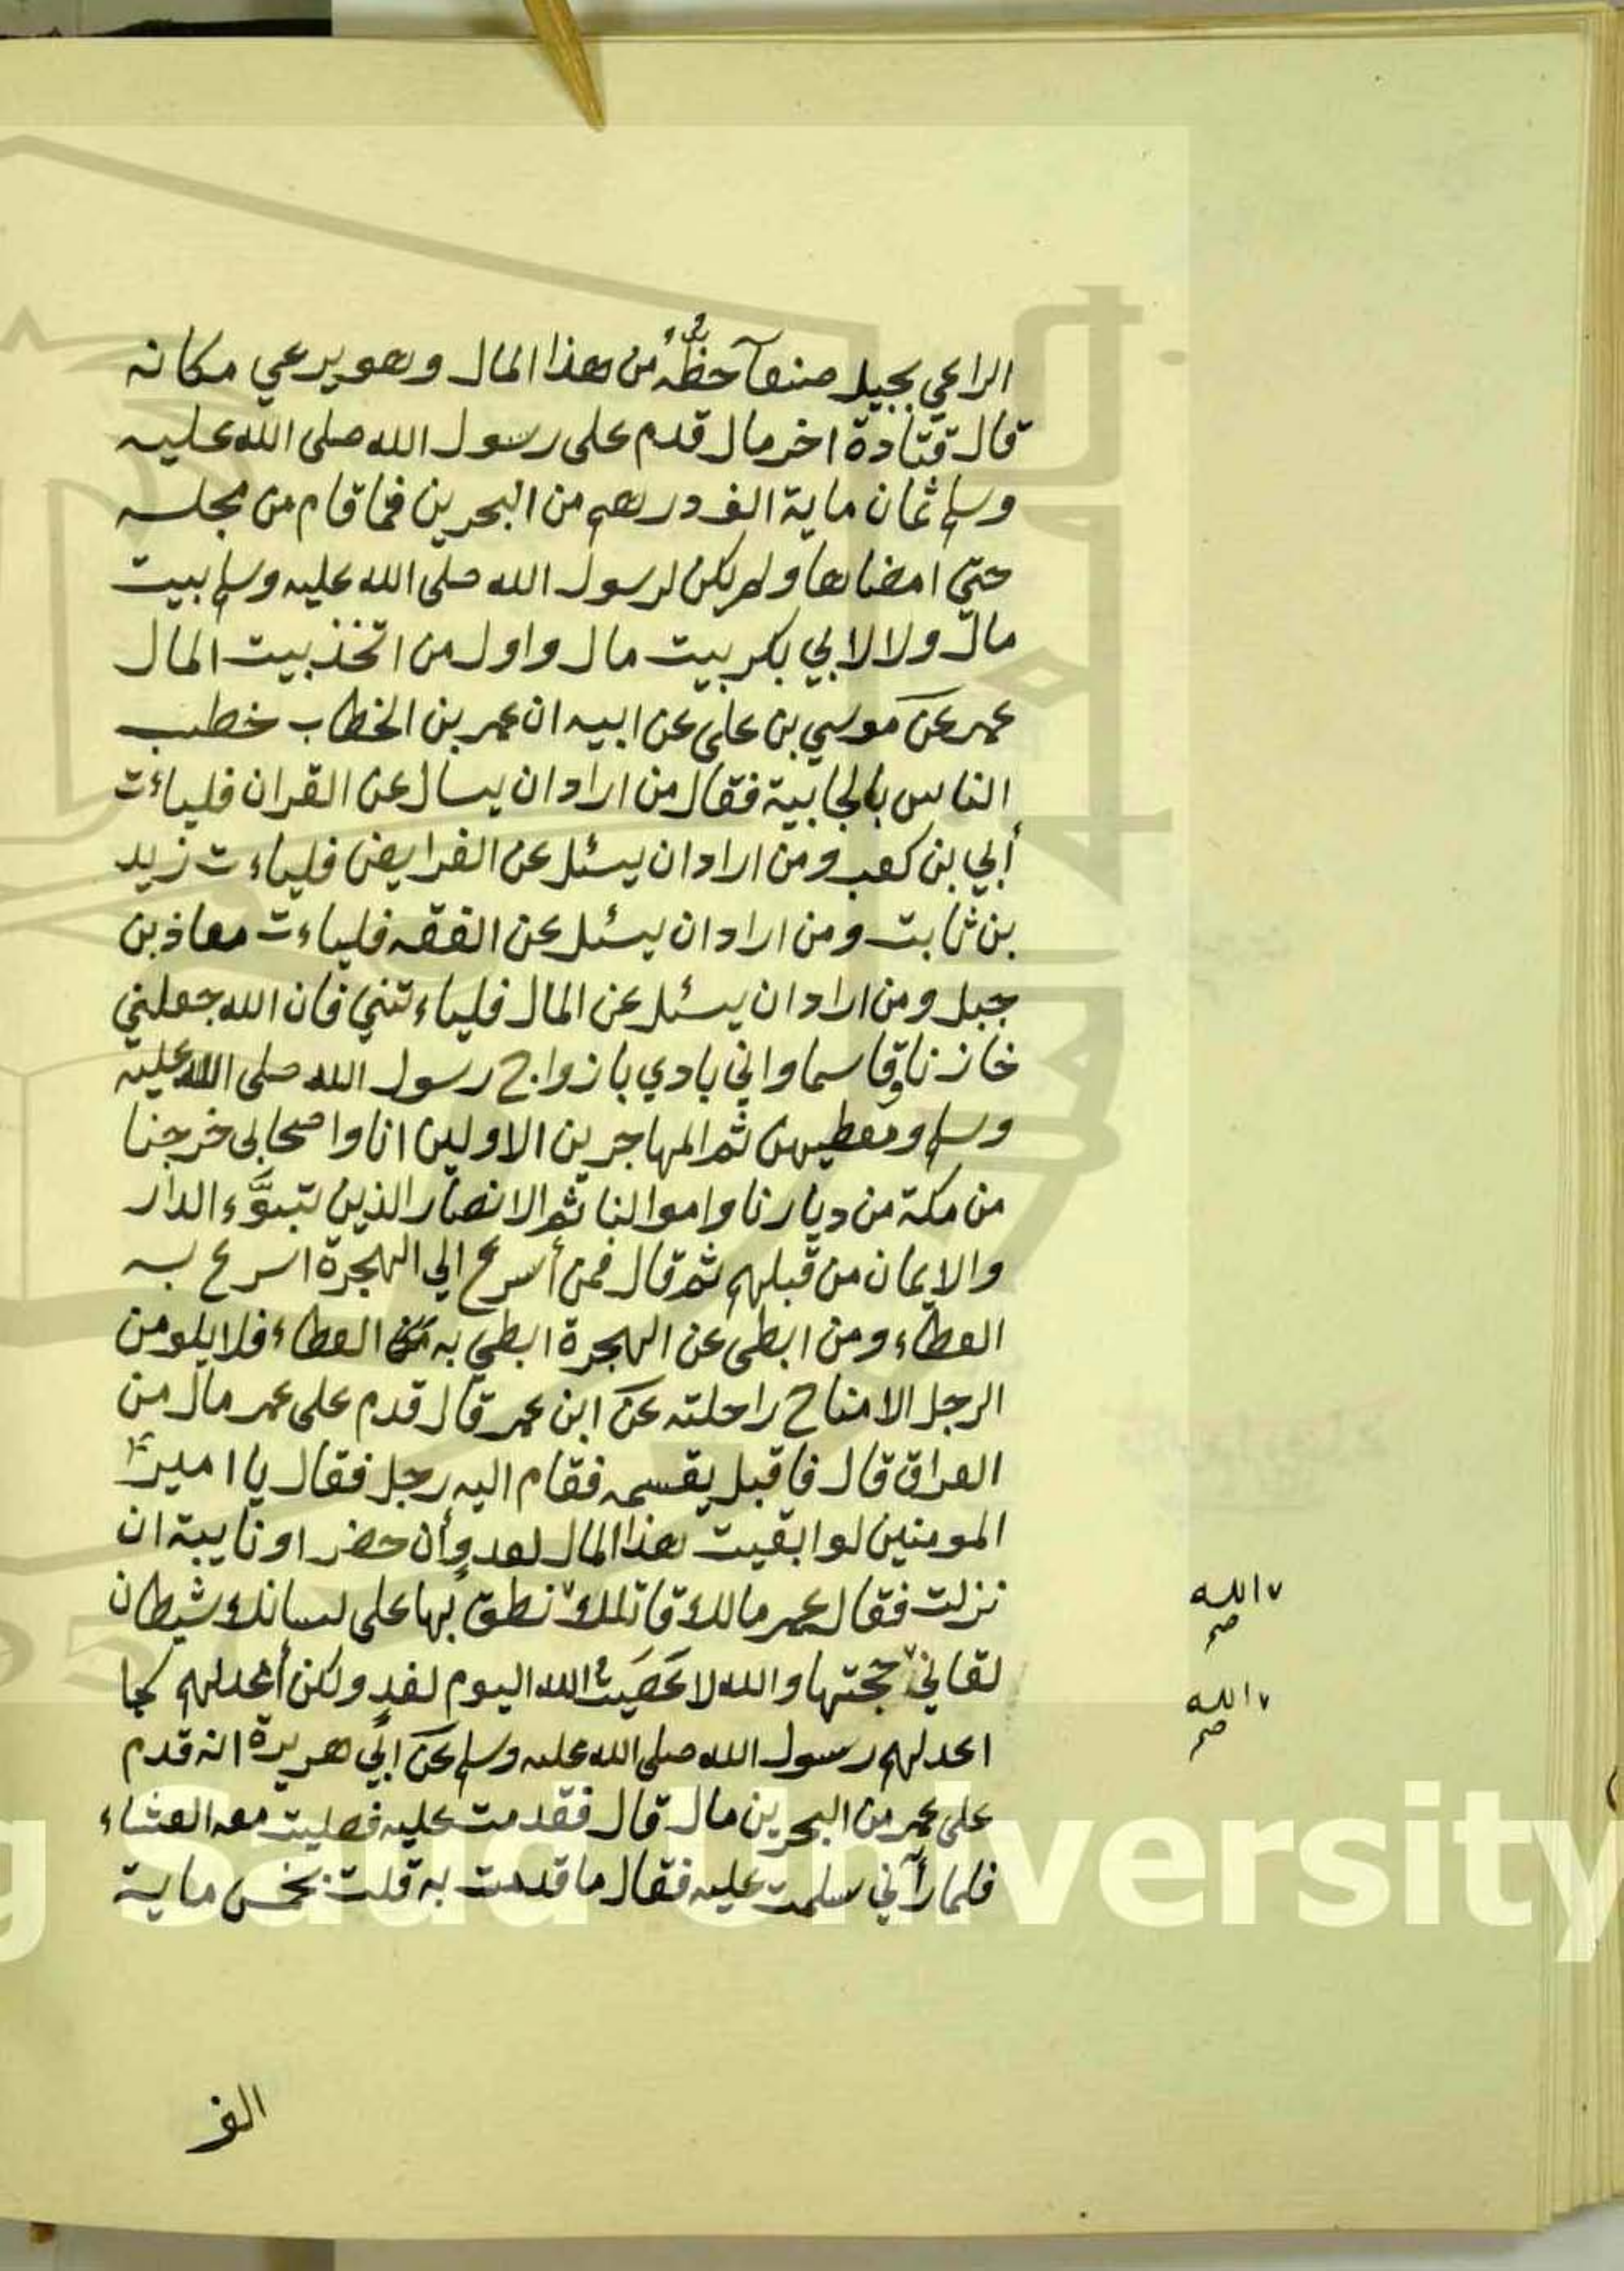 الراعي بجبل صنعآ حظُّهُ من هذا المال وهو يرعي مكانه
قال قتادة اخر مال قدم على رسول الله صلى الله عليه
وسلم ثمان ماية الف درهم من البحرين فما قام من مجلسه
حتي امضاها ولم يكن لرسول الله صلى الله عليه وسلم بيت
مال ولا لابي بكر بيت مال واول من اتخذ بيت المال
عمر عن موسي بن على عن ابيه ان عمر بن الخطاب خطب
الناس بالجابية فقال من اراد ان يسال عن القران فلياءت
أبي بن كعب ومن اراد ان يسئل عن الفرايض فلياءت زيد
بن ثابت ومن اراد ان يسئل عن الفقه فلياءت معاذ بن
جبل ومن اراد ان يسئل عن المال فلياءتني فان الله جعلني
خازنا وقاسما واني بادي بازواج رسول الله صلى الله عليه
وسلم ومعطيهن ثم المهاجرين الاولين انا واصحابي خرجنا
من مكة من ديارنا واموالنا ثم الانصار الذين تبوَّء الدار
والايمان من قبلهم ثم قال فمن أسرع الي الهجرة اسرع به
العطاء ومن ابطى عن الهجرة ابطي به العطاء فلا يلومن
الرجل الا مناح راحلته عن ابن عمر قال قدم على عمر مال من
العراق قال فاقبل يقسمه فقام اليه رجل فقال يا امير
المومنين لو ابقيت هذا المال لعدوٍ أن حضر او نايبة ان
نزلت فقال عمر مالك قاتلك نطق بها على لسانك شيطان
لقاني حجتها والله لا عَصَيتُ الله اليوم لغدٍ ولكن أعد لهم كما
اعد لهم رسول الله صلى الله عليه وسلم عن ابي هريرة انه قدم
على عمر من البحرين مال قال فقدمت عليه فصليت معه العشاء
فلما رآني سلمت عليه فقال ما قدمت به قلت بخمس ماية
الله صح
الله صح
الف
King Saud University